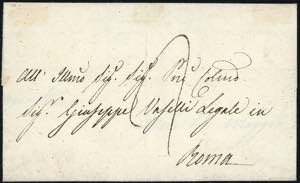 All' Illmo Sig. Sig. Pne Colmo
Sig. Giuseppe Vaselli Legale in
Roma